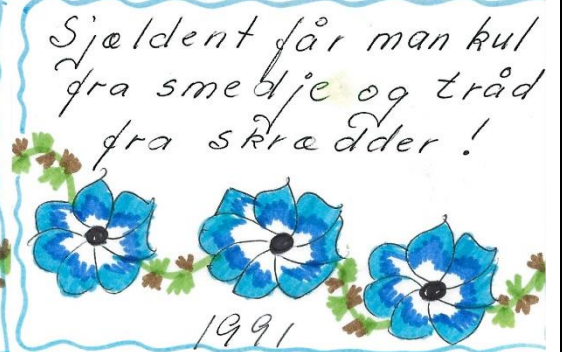 Sjældent får man kul
fra smedje og tråd
fra skrædder!
1991